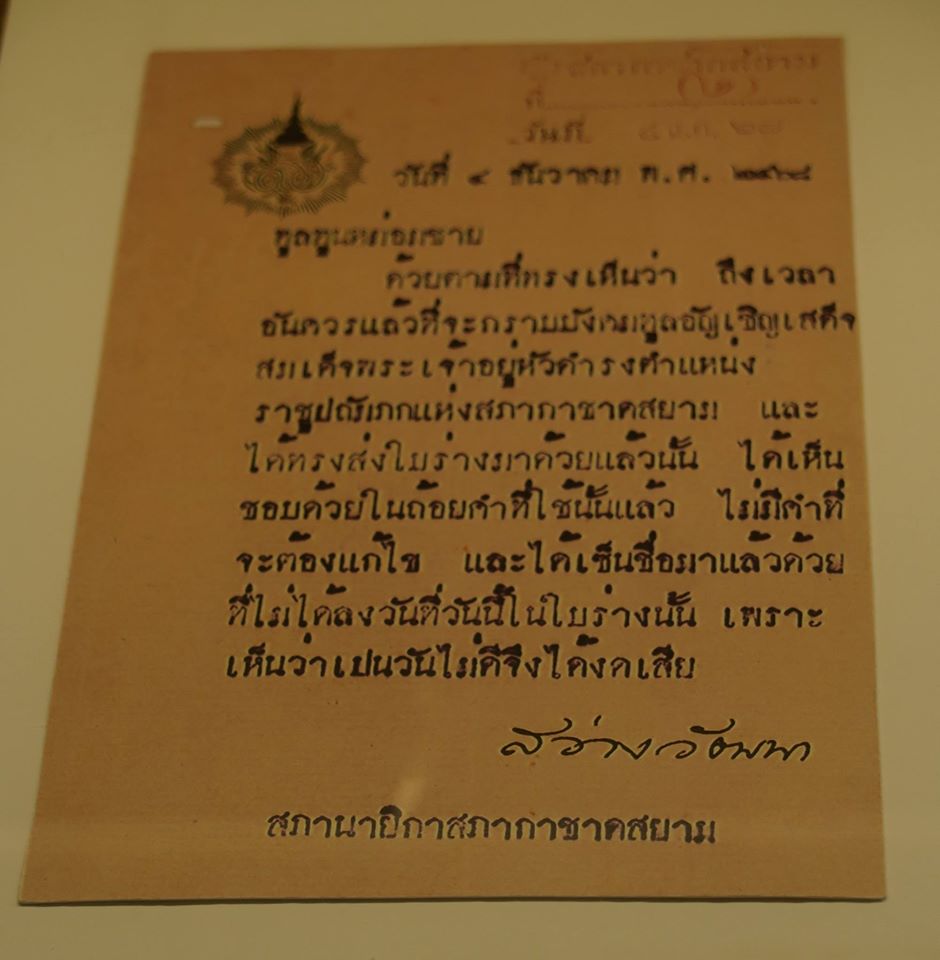 ที่ (๒)
วันที่ ๕ ธ.ค. ๒๘
วันที่ ๔ ธันวาคม พ.ศ. ๒๔๖๘
ทูลทูนหม่อมชาย
ด้วยตามที่ทรงเห็นว่า ถึงเวลา
อันควรแล้วที่จะกราบบังคมทูลอัญเชิญเสด็จ
สมเด็จพระเจ้าอยู่หัวดำรงตำแหน่ง
ราชูปถัมภกแห่งสภากาชาดสยาม และ
ได้ทรงส่งใบร่างมาด้วยแล้วนั้น ได้เห็น
ชอบด้วยในถ้อยคำที่ใช้นั้นแล้ว ไม่มีคำที่
จะต้องแก้ไข และได้เซ็นชื่อมาแล้วด้วย
ที่ไม่ได้ลงวันที่วันนี้ในใบร่างนั้น เพราะ
เห็นว่าเปนวันไม่ดีจึงได้งดเสีย
สว่างวัฒนา
สภานายิกาสภากาชาดสยาม